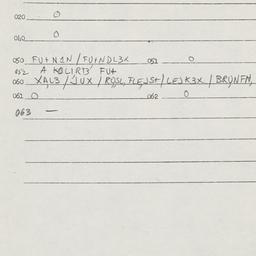 020 O
040 O
050 FU+NIN / FU+NDL3X 051 O
052 A KQLIRT3 FU+
060 XAL3 / JUX / RQSL, FLEJS+ / LEJK3X / BRQNFM,
061 O 062 O
063 —